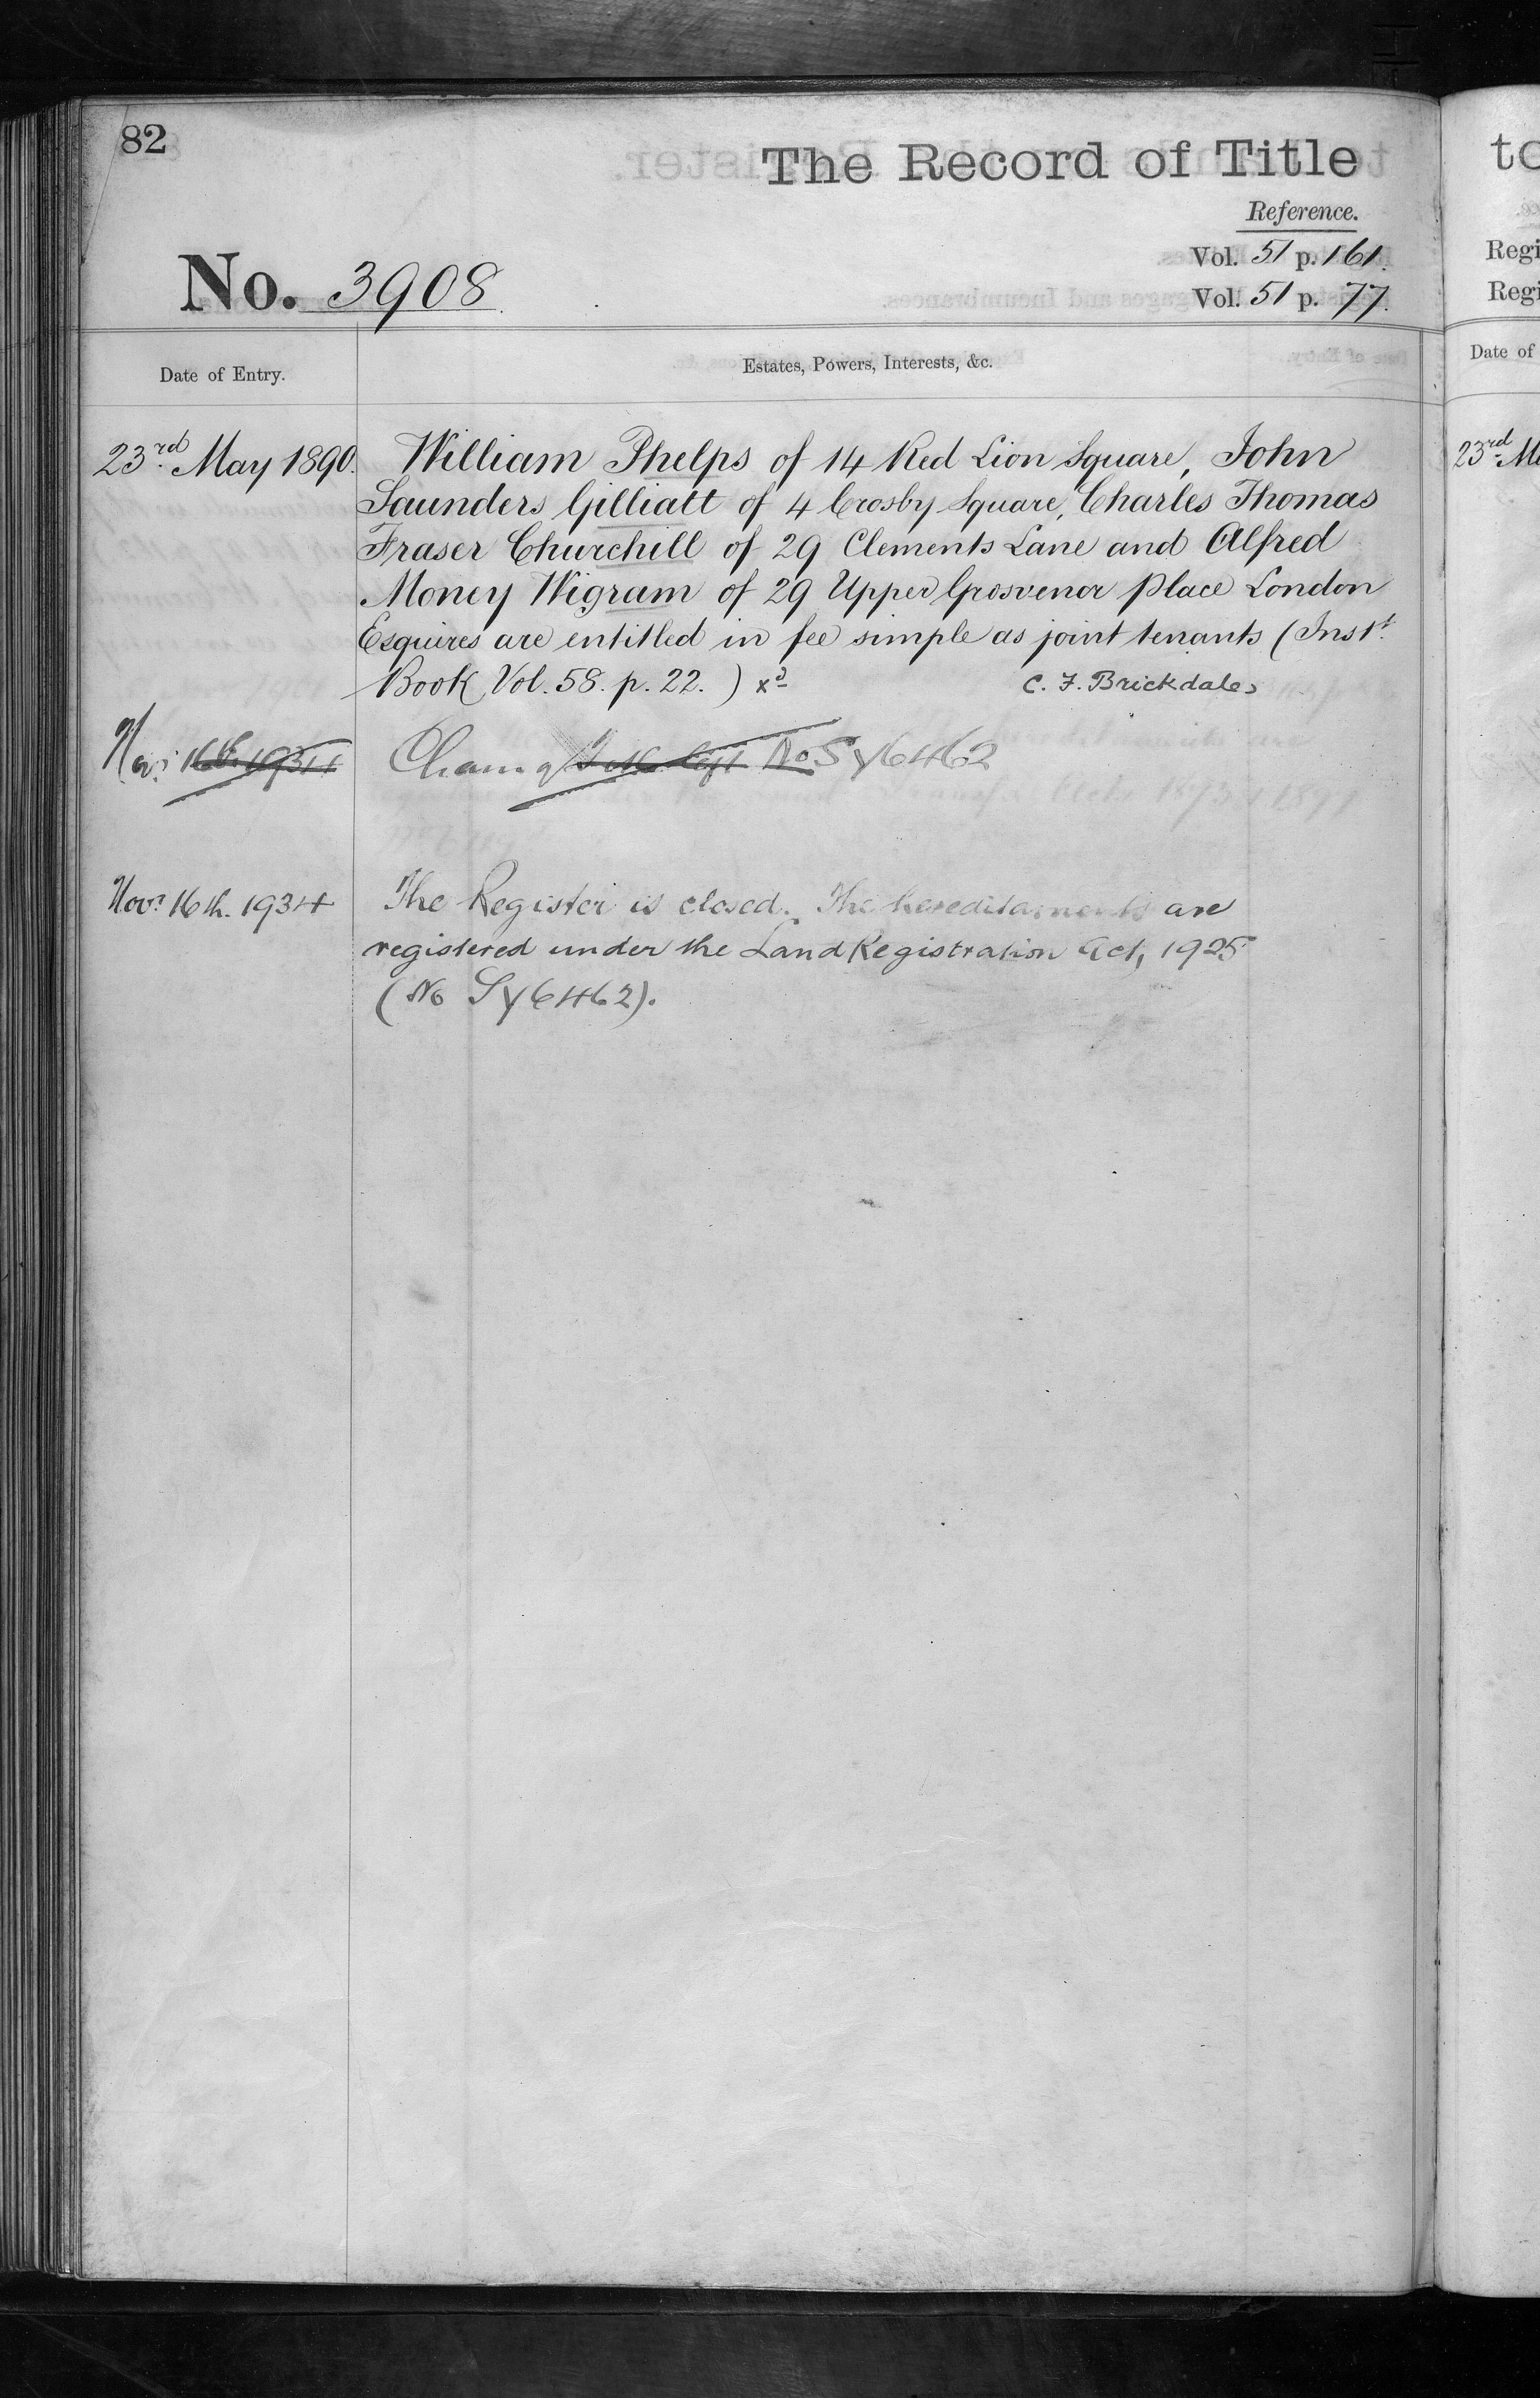 82
The Record of Title
Reference.
Vol. 51 p. 161.
Vol. 51 p. 77.
No. 3908
Date of Entry.
Estates, Powers, Interests, &c.
23rd May 1890.
William Phelps of 14 Red Lion Square, John
Saunders Gilliatt of 4 Crosby Square, Charles Thomas
Fraser Churchill of 29 Clements Lane and Alfred
Money Wigram of 29 Upper Grosvenor Place London
Esquires are entitled in fee simple as joint tenants (Inst.
Book Vol. 58. p. 22.) xd
C. F. Brickdale
Nov. 16th 1934
No Sy6462
Novr 16th. 1934
The Register is closed. The hereditaments are
registered under the Land Registration Act, 1925
(No Sy6462).
to
Regi
Regi
Date of
23rd